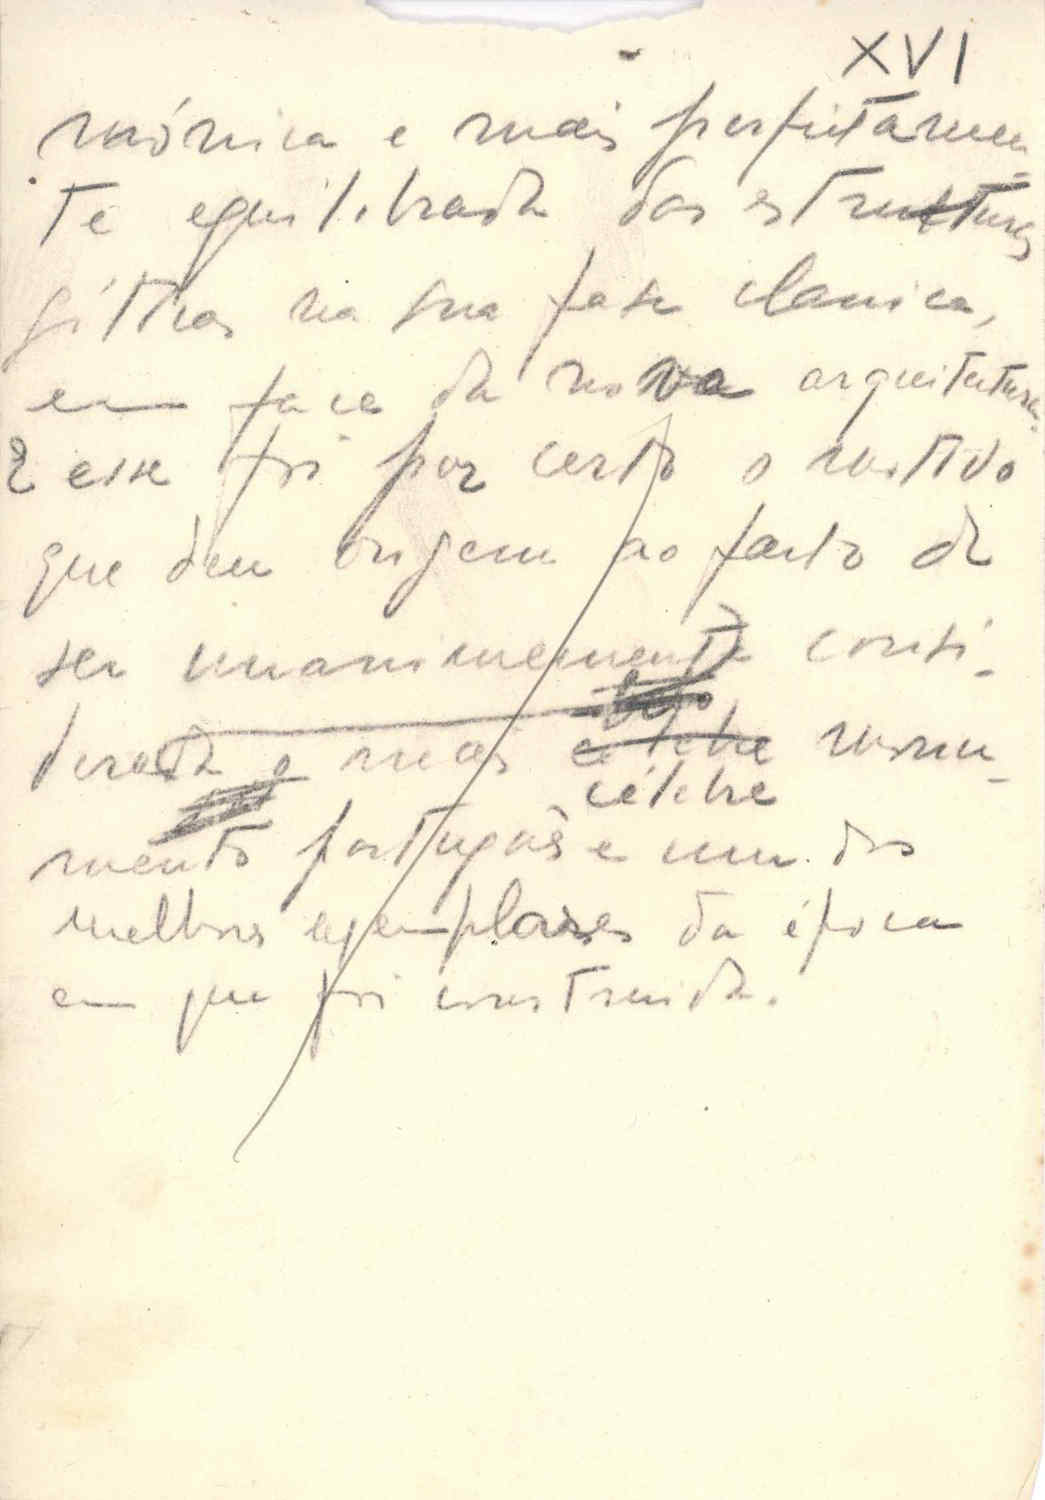 XVI
mónica e mais perfeitamen-
te equilibrada das estruturas
góticas na sua fase classica,
em face da nova arquitetura.
E esse foi por certo o motivo
que deu origem ao facto de
ser unanimemente consi-
derada o mais célebre monu-
célebre
mento português e um dos
melhores exemplares da época
em que foi construida.